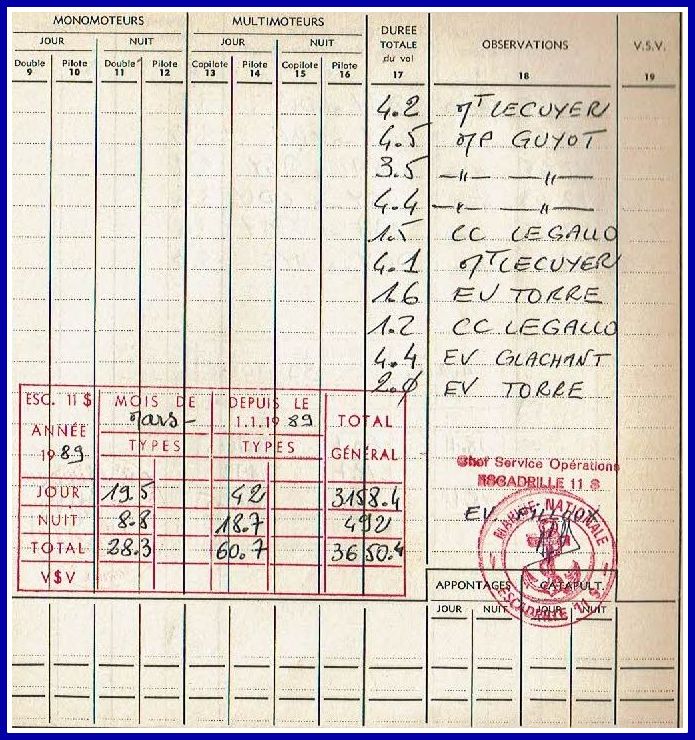 MONOMOTEURS MULTIMOTEURS DUREE TOTALE du vol OBSERVATIONS V.S.V.
JOUR NUIT JOUR NUIT
Double Pilote Double Pilote Copilote Pilote Copilote Pilote
9 10 11 12 13 14 15 16 17 18 19
4.2 MT LECUYER
4.5 MP GUYOT
3.5 —〃— —〃—
4.4 —〃— —〃—
1.5 CC LEGALLO
4.1 MT LECUYER
1.6 EV TORRE
1.2 CC LEGALLO
4.4 EV GLACHANT
2.0 EV TORRE
ESC. 11 S MOIS DE Mars- DEPUIS LE 1.1.19 89 TOTAL GÉNÉRAL
ANNÉE 19 89 TYPES TYPES
JOUR 19.5 42 3158.4
NUIT 8.8 18.7 492
TOTAL 28.3 60.7 3650.4
V$V
Chef Service Opérations
ESCADRILLE 11 S
EV
MARINE NATIONALE
ESCADRILLE 11 S
APPONTAGES CATAPULT.
JOUR NUIT JOUR NUIT